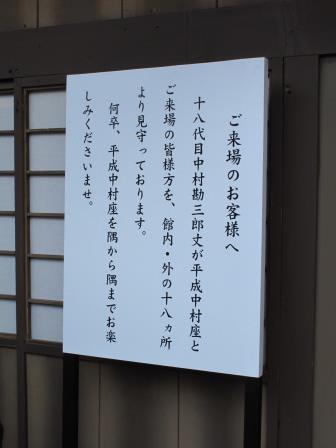 ご来場のお客様へ
十八代目中村勘三郎丈が平成中村座と
ご来場の皆様方を、館内・外の十八ヵ所
より見守っております。
何卒、平成中村座を隅から隅までお楽
しみくださいませ。